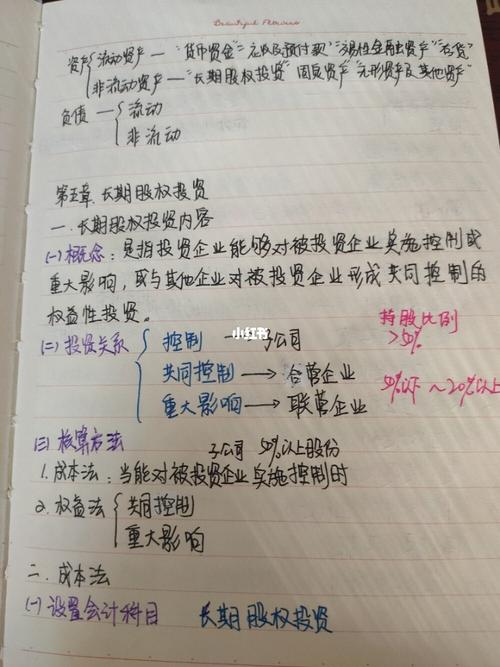 Beautiful Flowers
资产 流动资产 — "货币资金" 应收及预付款" "交易性金融资产" "存货"
非流动资产 — "长期股权投资" 固定资产" "无形资产及其他资产"
负债 — 流动
非流动
第五章. 长期股权投资
一. 长期股权投资内容
(一) 概念: 是指投资企业能够对被投资企业实施控制或
重大影响, 或与其他企业对被投资企业形成共同控制的
权益性投资。
持股比例
(二) 投资关系 控制 — 子公司 >50%
小红书
共同控制 → 合营企业
50%以下 ~ 20%以上
重大影响 → 联营企业
(三) 核算方法 子公司 50%以上股份
1. 成本法: 当能对被投资企业实施控制时
2. 权益法 共同控制
重大影响
二. 成本法
(一) 设置会计科目 长期股权投资